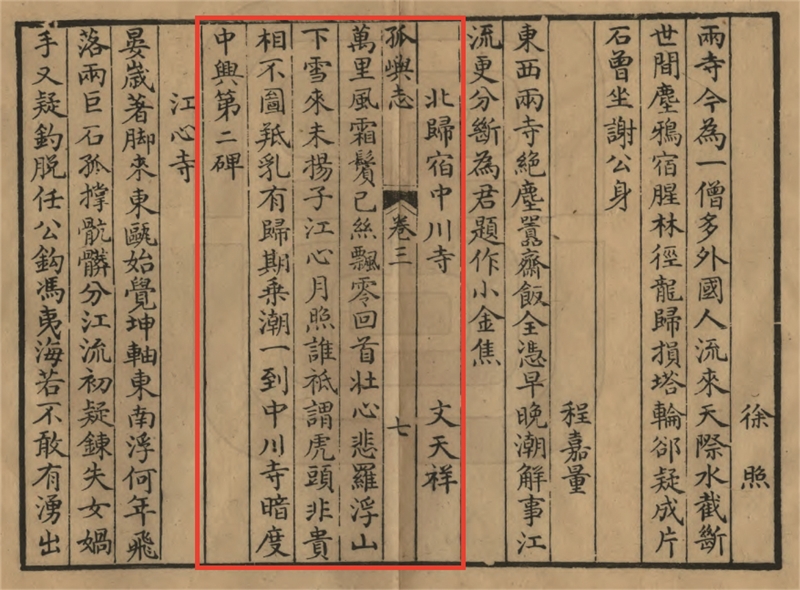 徐照
兩寺今為一僧多外國人流來天際水截斷
世間塵鴉宿腥林徑龍歸損塔輪郤疑成片
石曾坐謝公身
程嘉量
東西兩寺絕塵囂齋飯全憑早晚潮解事江
流更分斷為君題作小金焦
北歸宿中川寺 文天祥
孤嶼志 卷三 七
萬里風霜鬢已絲飄零回首壯心悲羅浮山
下雪來未揚子江心月照誰祗謂虎頭非貴
相不圖羝乳有歸期乘潮一到中川寺暗度
中興第二碑
江心寺
晏歲著脚来東甌始覺坤軸東南浮何年飛
落兩巨石孤撐骯髒分江流初疑鍊失女媧
手又疑釣脫任公鈎馮夷海若不敢有湧出